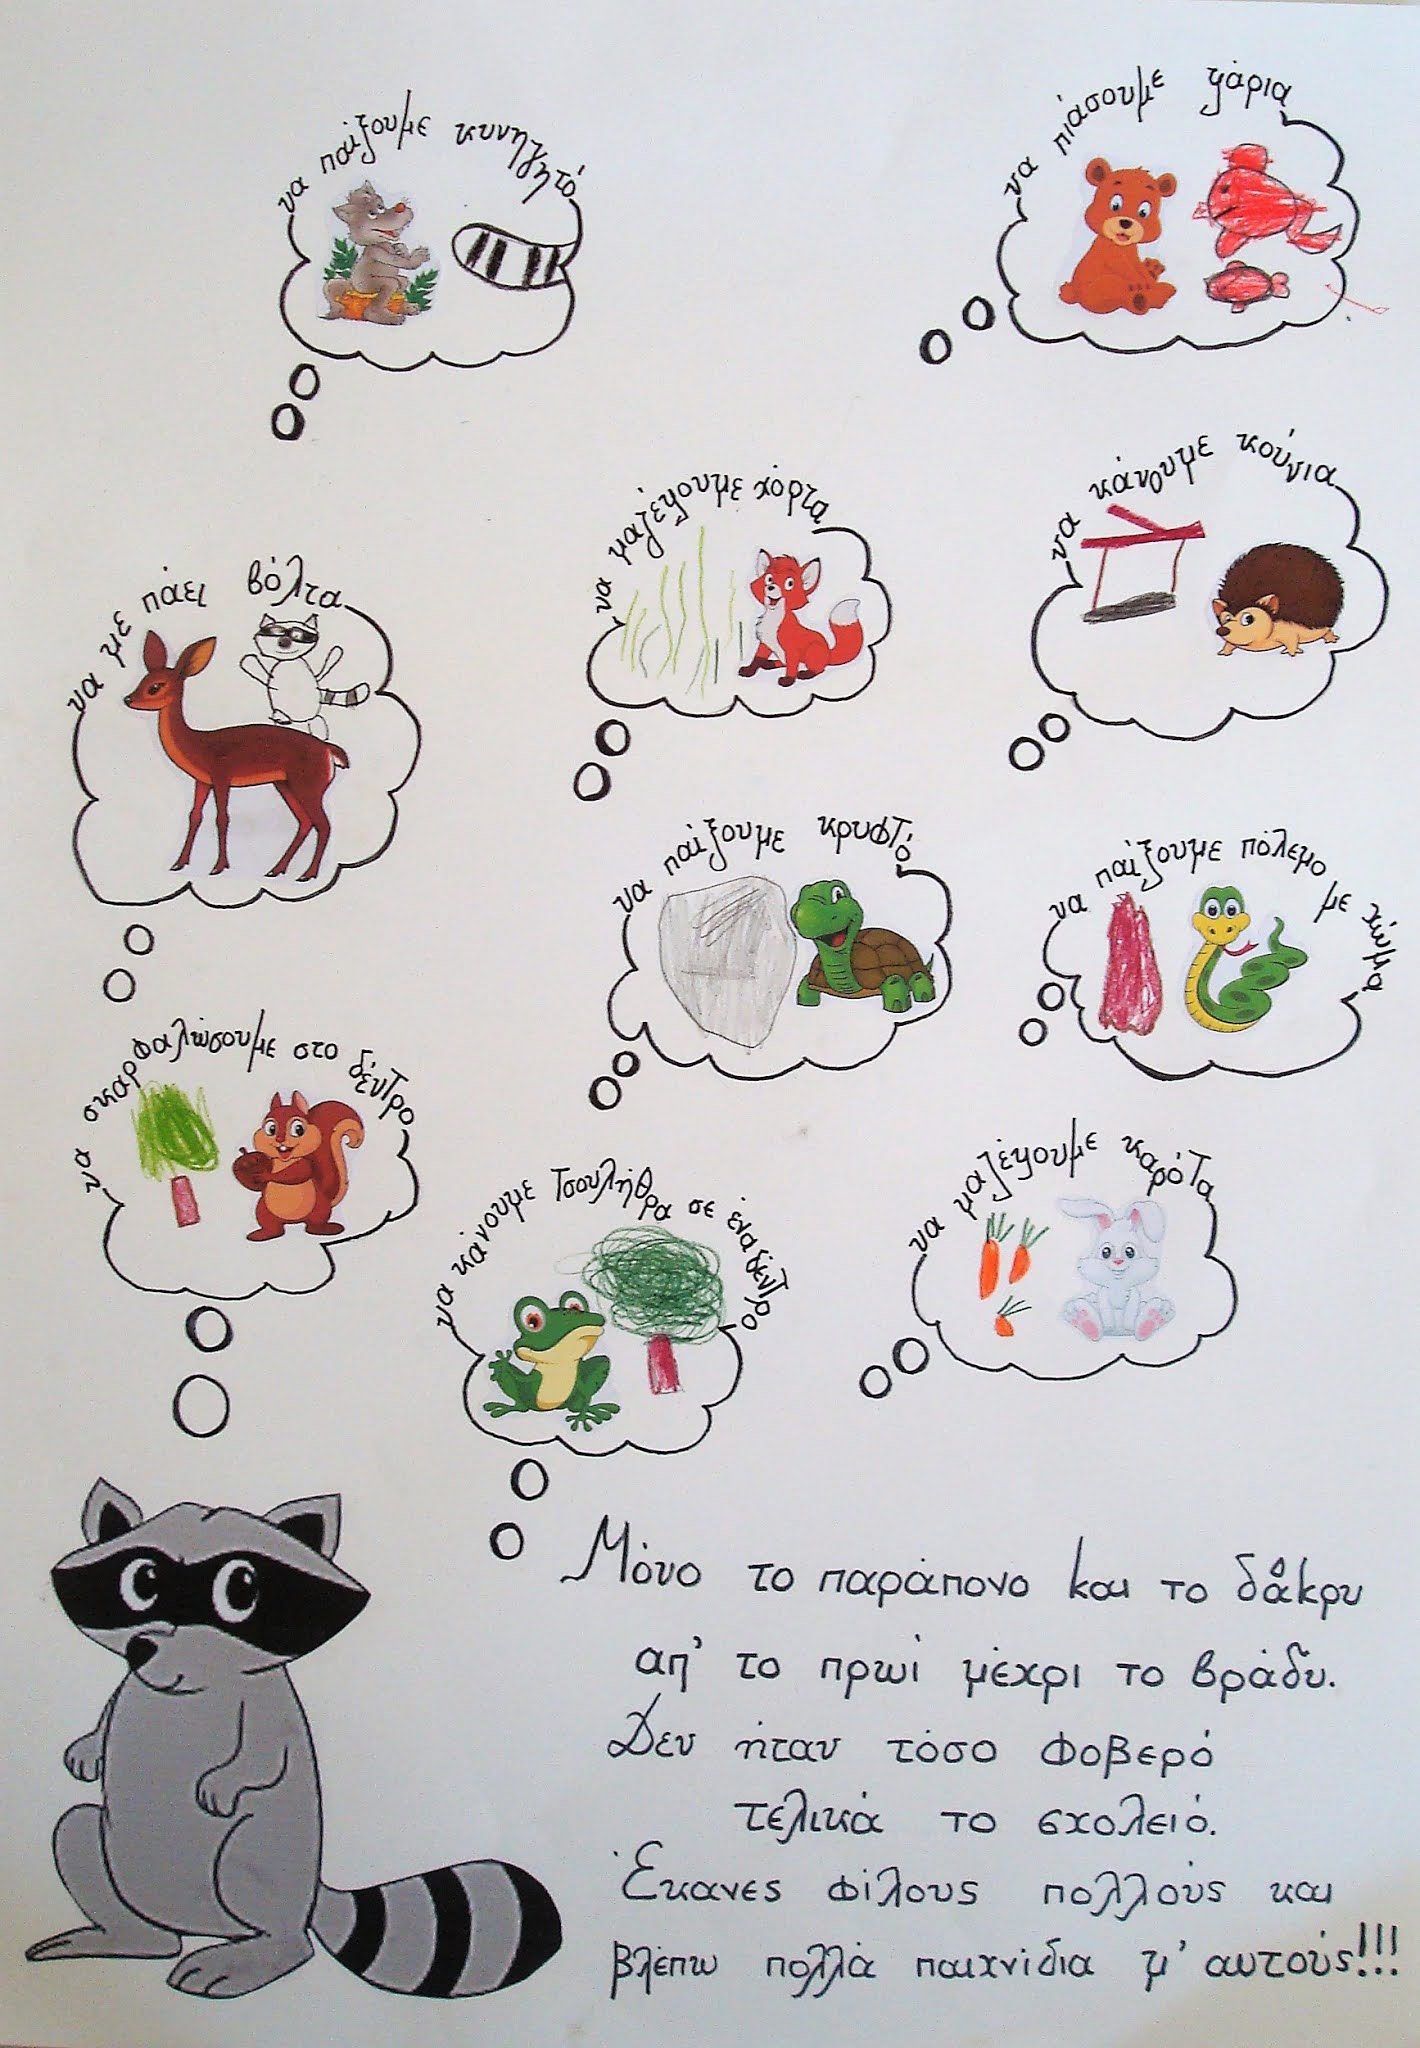 να παίξουμε κυνηγητό
να πιάσουμε ψάρια
να μαζέψουμε χόρτα
να κάνουμε κούνια
να με πάει βόλτα
να παίξουμε κρυφτό
να παίξουμε πόλεμο με χώμα
να σκαρφαλώσουμε στο δέντρο
να κάνουμε τσουλήθρα σε ένα δέντρο
να μαζέψουμε καρότα
Μόνο το παράπονο και το δάκρυ
απ' το πρωί μέχρι το βράδυ.
Δεν ήταν τόσο φοβερό
τελικά το σχολειό.
Έκανες φίλους πολλούς και
βλέπω πολλά παιχνίδια μ' αυτούς!!!